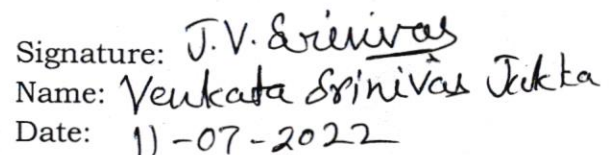 Signature: J.V. Srinivas
Name: Venkata Srinivas Jakka
Date: 11-07-2022